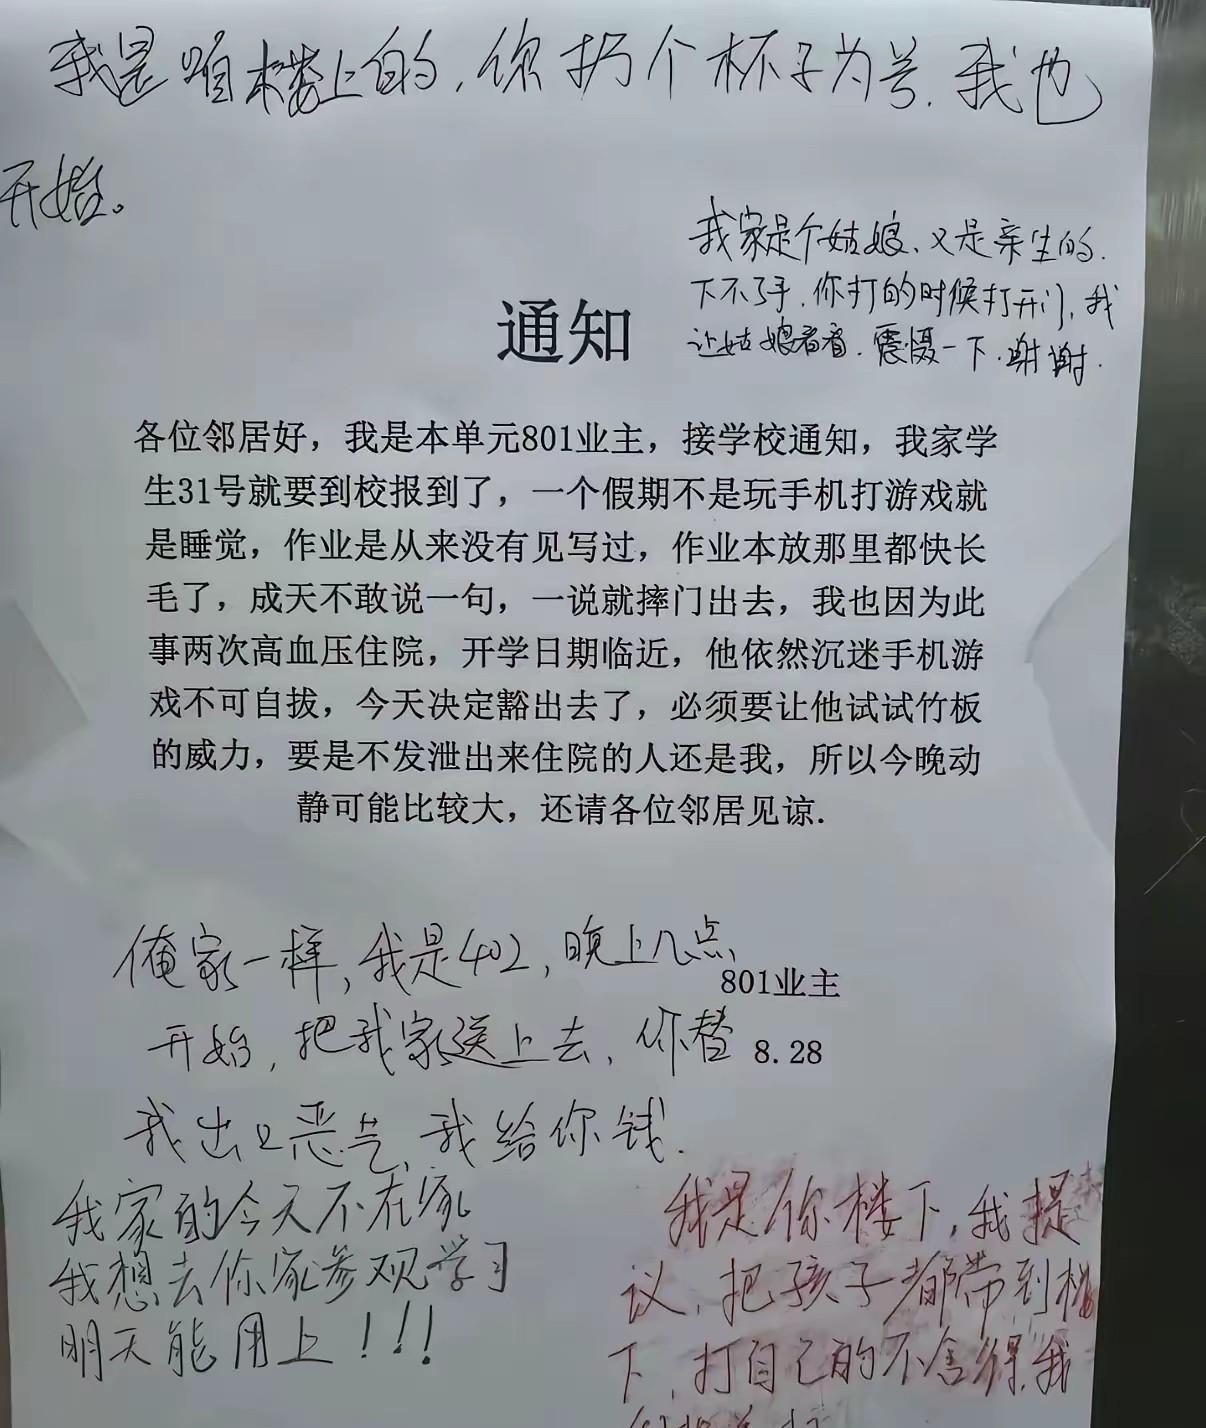 我是咱楼上的，你扔个杯子为号，我也
开始。
我家是个姑娘、又是亲生的.
下不了手，你打的时候打开门，我
让姑娘看看，震慑一下.谢谢.
通知
各位邻居好，我是本单元801业主，接学校通知，我家学
生31号就要到校报到了，一个假期不是玩手机打游戏就
是睡觉，作业是从来没有见写过，作业本放那里都快长
毛了，成天不敢说一句，一说就摔门出去，我也因为此
事两次高血压住院，开学日期临近，他依然沉迷手机游
戏不可自拔，今天决定豁出去了，必须要让他试试竹板
的威力，要是不发泄出来住院的人还是我，所以今晚动
静可能比较大，还请各位邻居见谅.
801业主
8.28
俺家一样，我是402，晚上几点
开始，把我家送上去，你替
我出口恶气，我给你钱.
我家的今天不在家
我想去你家参观学习
明天能用上！！！
我是你楼下，我提
议，把孩子都带到楼
下，打自己的不舍得，我